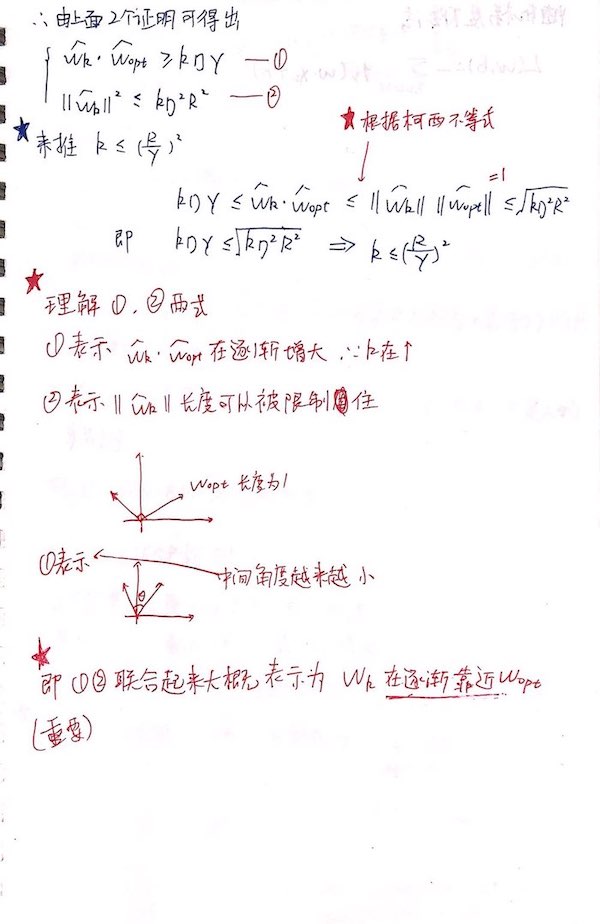 ∴ 由上面2个证明可得出
ŵk · ŵopt ≥ kηγ —①
||ŵk||² ≤ kη²R² —②
★来推 k ≤ (R/γ)²
★根据柯西不等式
kηγ ≤ ŵk · ŵopt ≤ ||ŵk|| ||ŵopt|| ≤ √kη²R²
=1
即 kηγ ≤ √kη²R² ⇒ k ≤ (R/γ)²
★
理解①,②两式
①表示 ŵk · ŵopt 在逐渐增大 ∵k在↑
②表示 ||ŵk|| 长度可以被限制住
wopt 长度为1
①表示
中间角度越来越小
θ
★
即①②联合起来大概表示为 Wk 在逐渐靠近 Wopt
(重要)